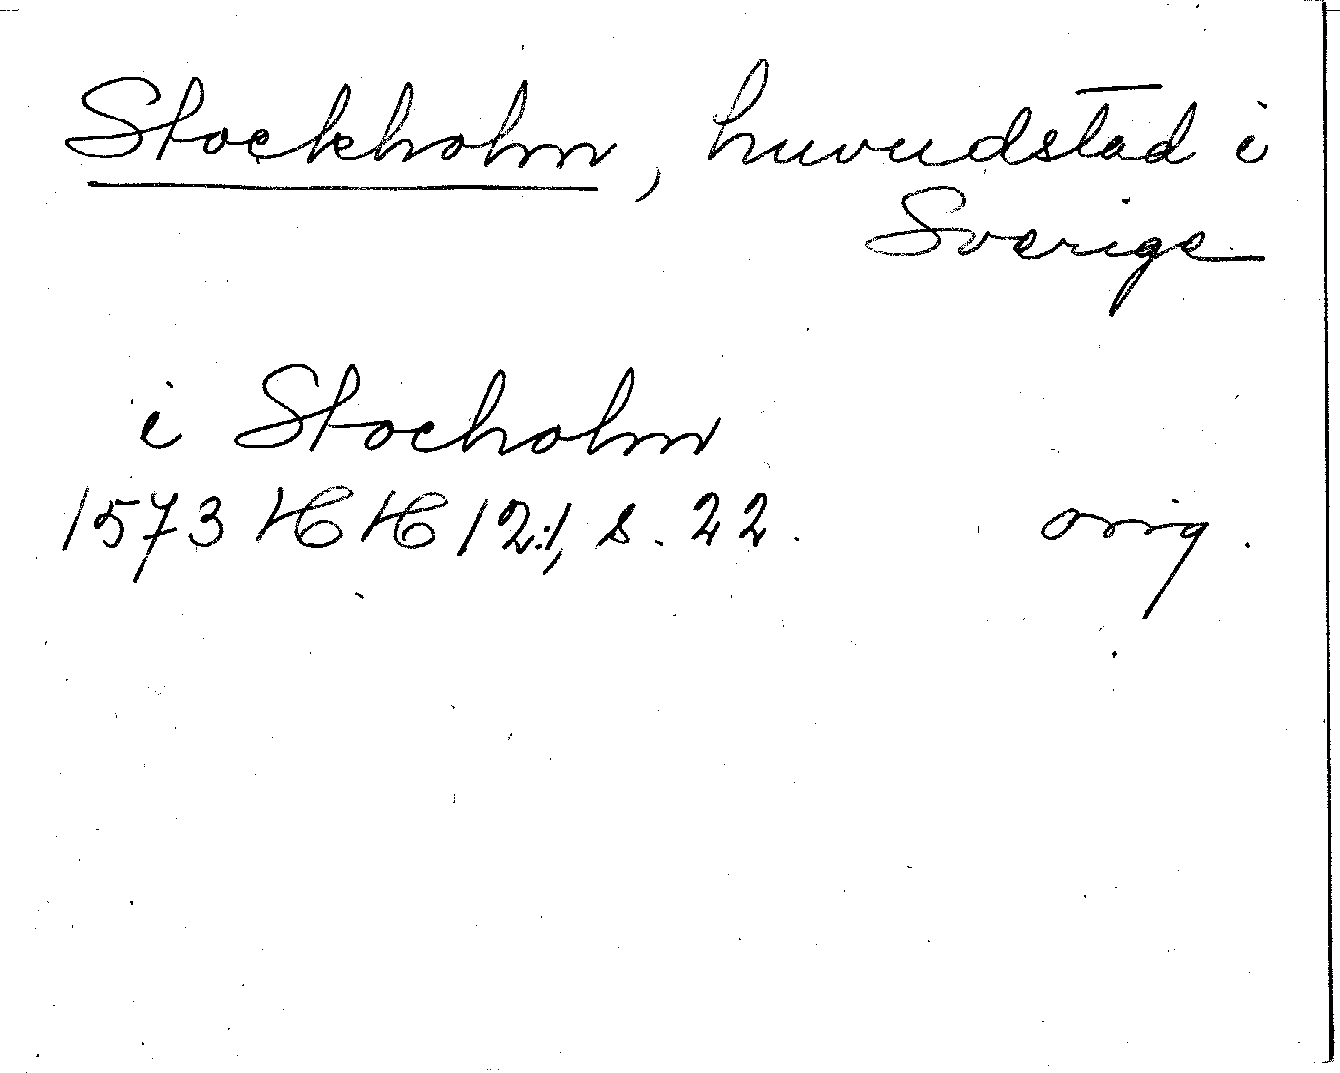 Stockholm, huvudstad i
Sverige
i Stocholm
1573 HH 12:1, s. 22. orig.